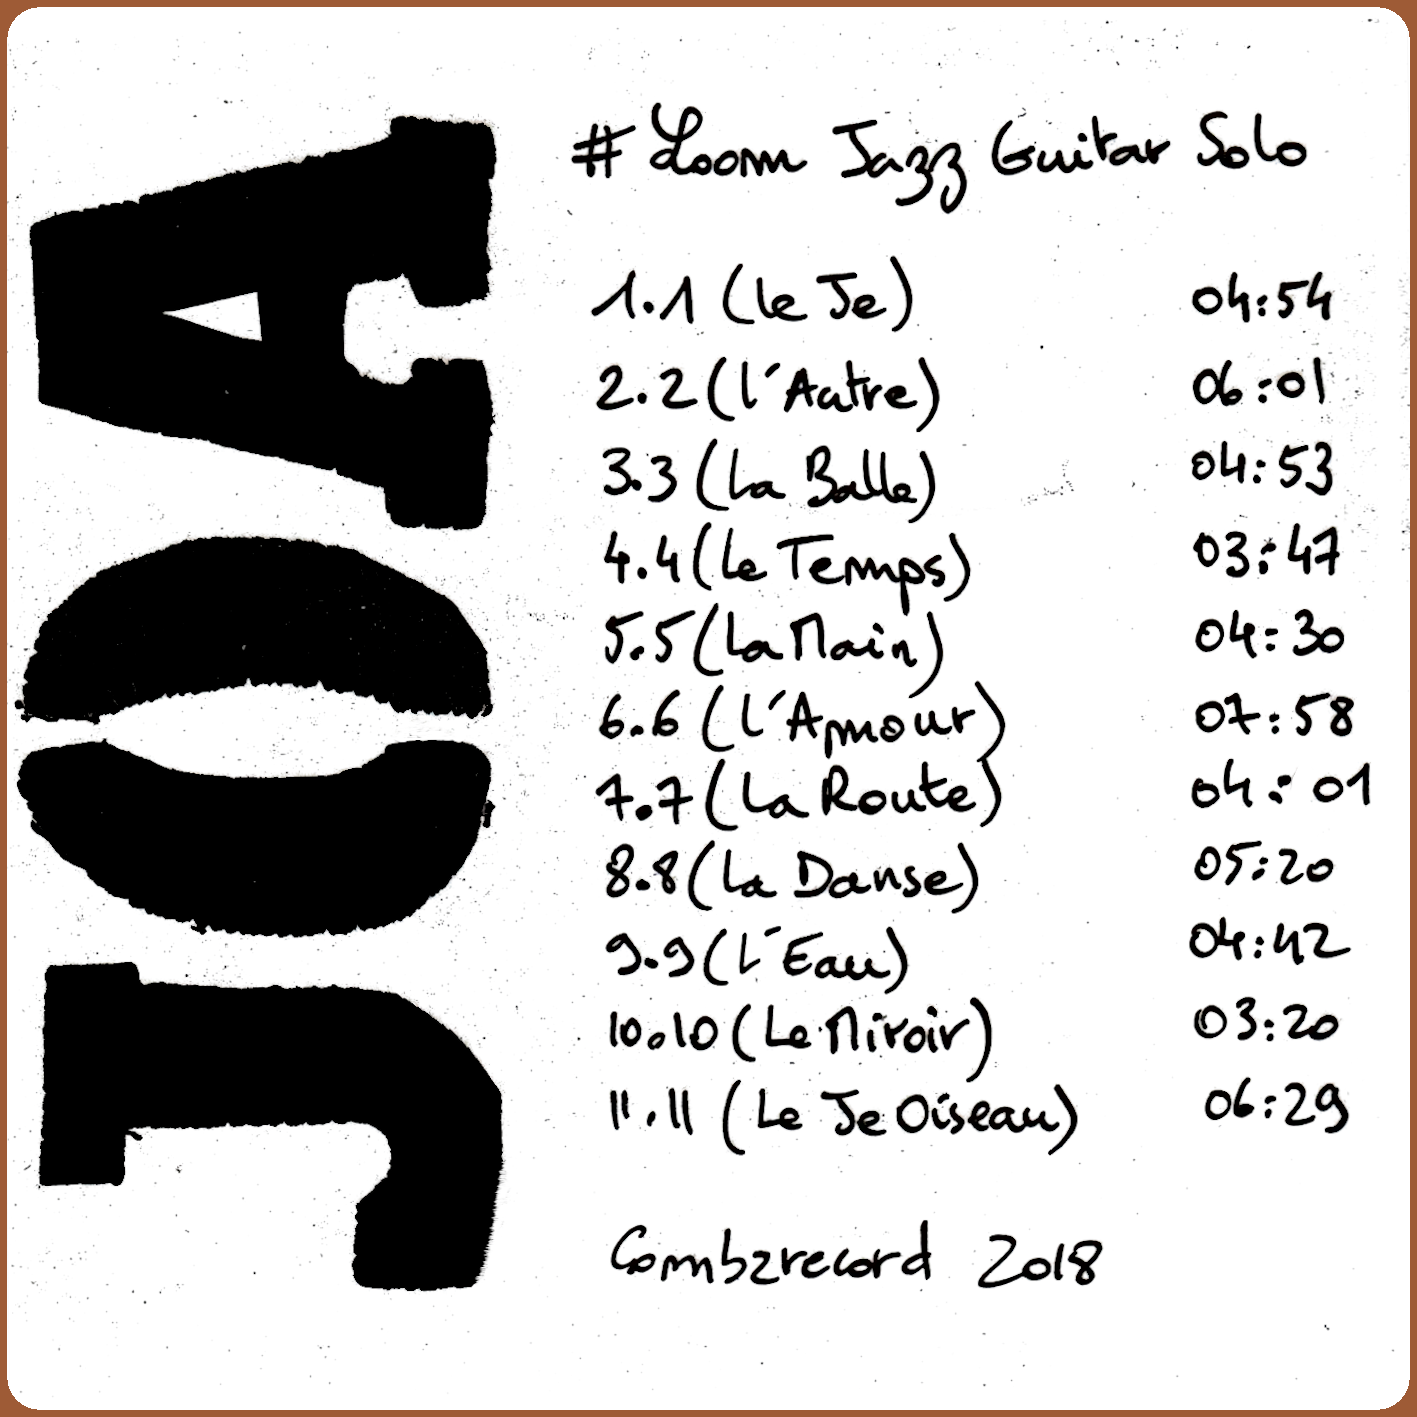 JODA
# Loom Jazz Guitar Solo
1.1 (Le Je) 04:54
2.2 (L'Autre) 06:01
3.3 (La Balle) 04:53
4.4 (Le Temps) 03:47
5.5 (La Main) 04:30
6.6 (L'Amour) 07:58
7.7 (La Route) 04:01
8.8 (La Danse) 05:20
9.9 (L'Eau) 04:42
10.10 (Le Miroir) 03:20
11.11 (Le Je Oiseau) 06:29
Combzrecord 2018